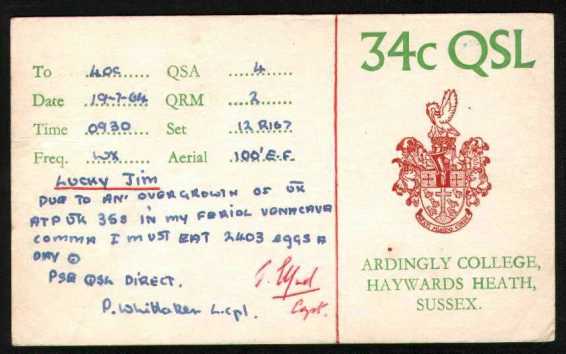 34c QSL
To 40c QSA 4
Date 19-7-64 QRM 2
Time 0930 Set 12 R107
Freq. WX Aerial 100' E.F.
LUCKY JIM
DUE TO AN OVERGROWTH OF UK
ATPUK 358 IN MY FERIOL VENACAVA
COMMA I MUST EAT 2403 EGGS A
DAY
PSE QSL DIRECT.
P. Whittaker L.cpl.
Capt.
ARDINGLY COLLEGE,
HAYWARDS HEATH,
SUSSEX.